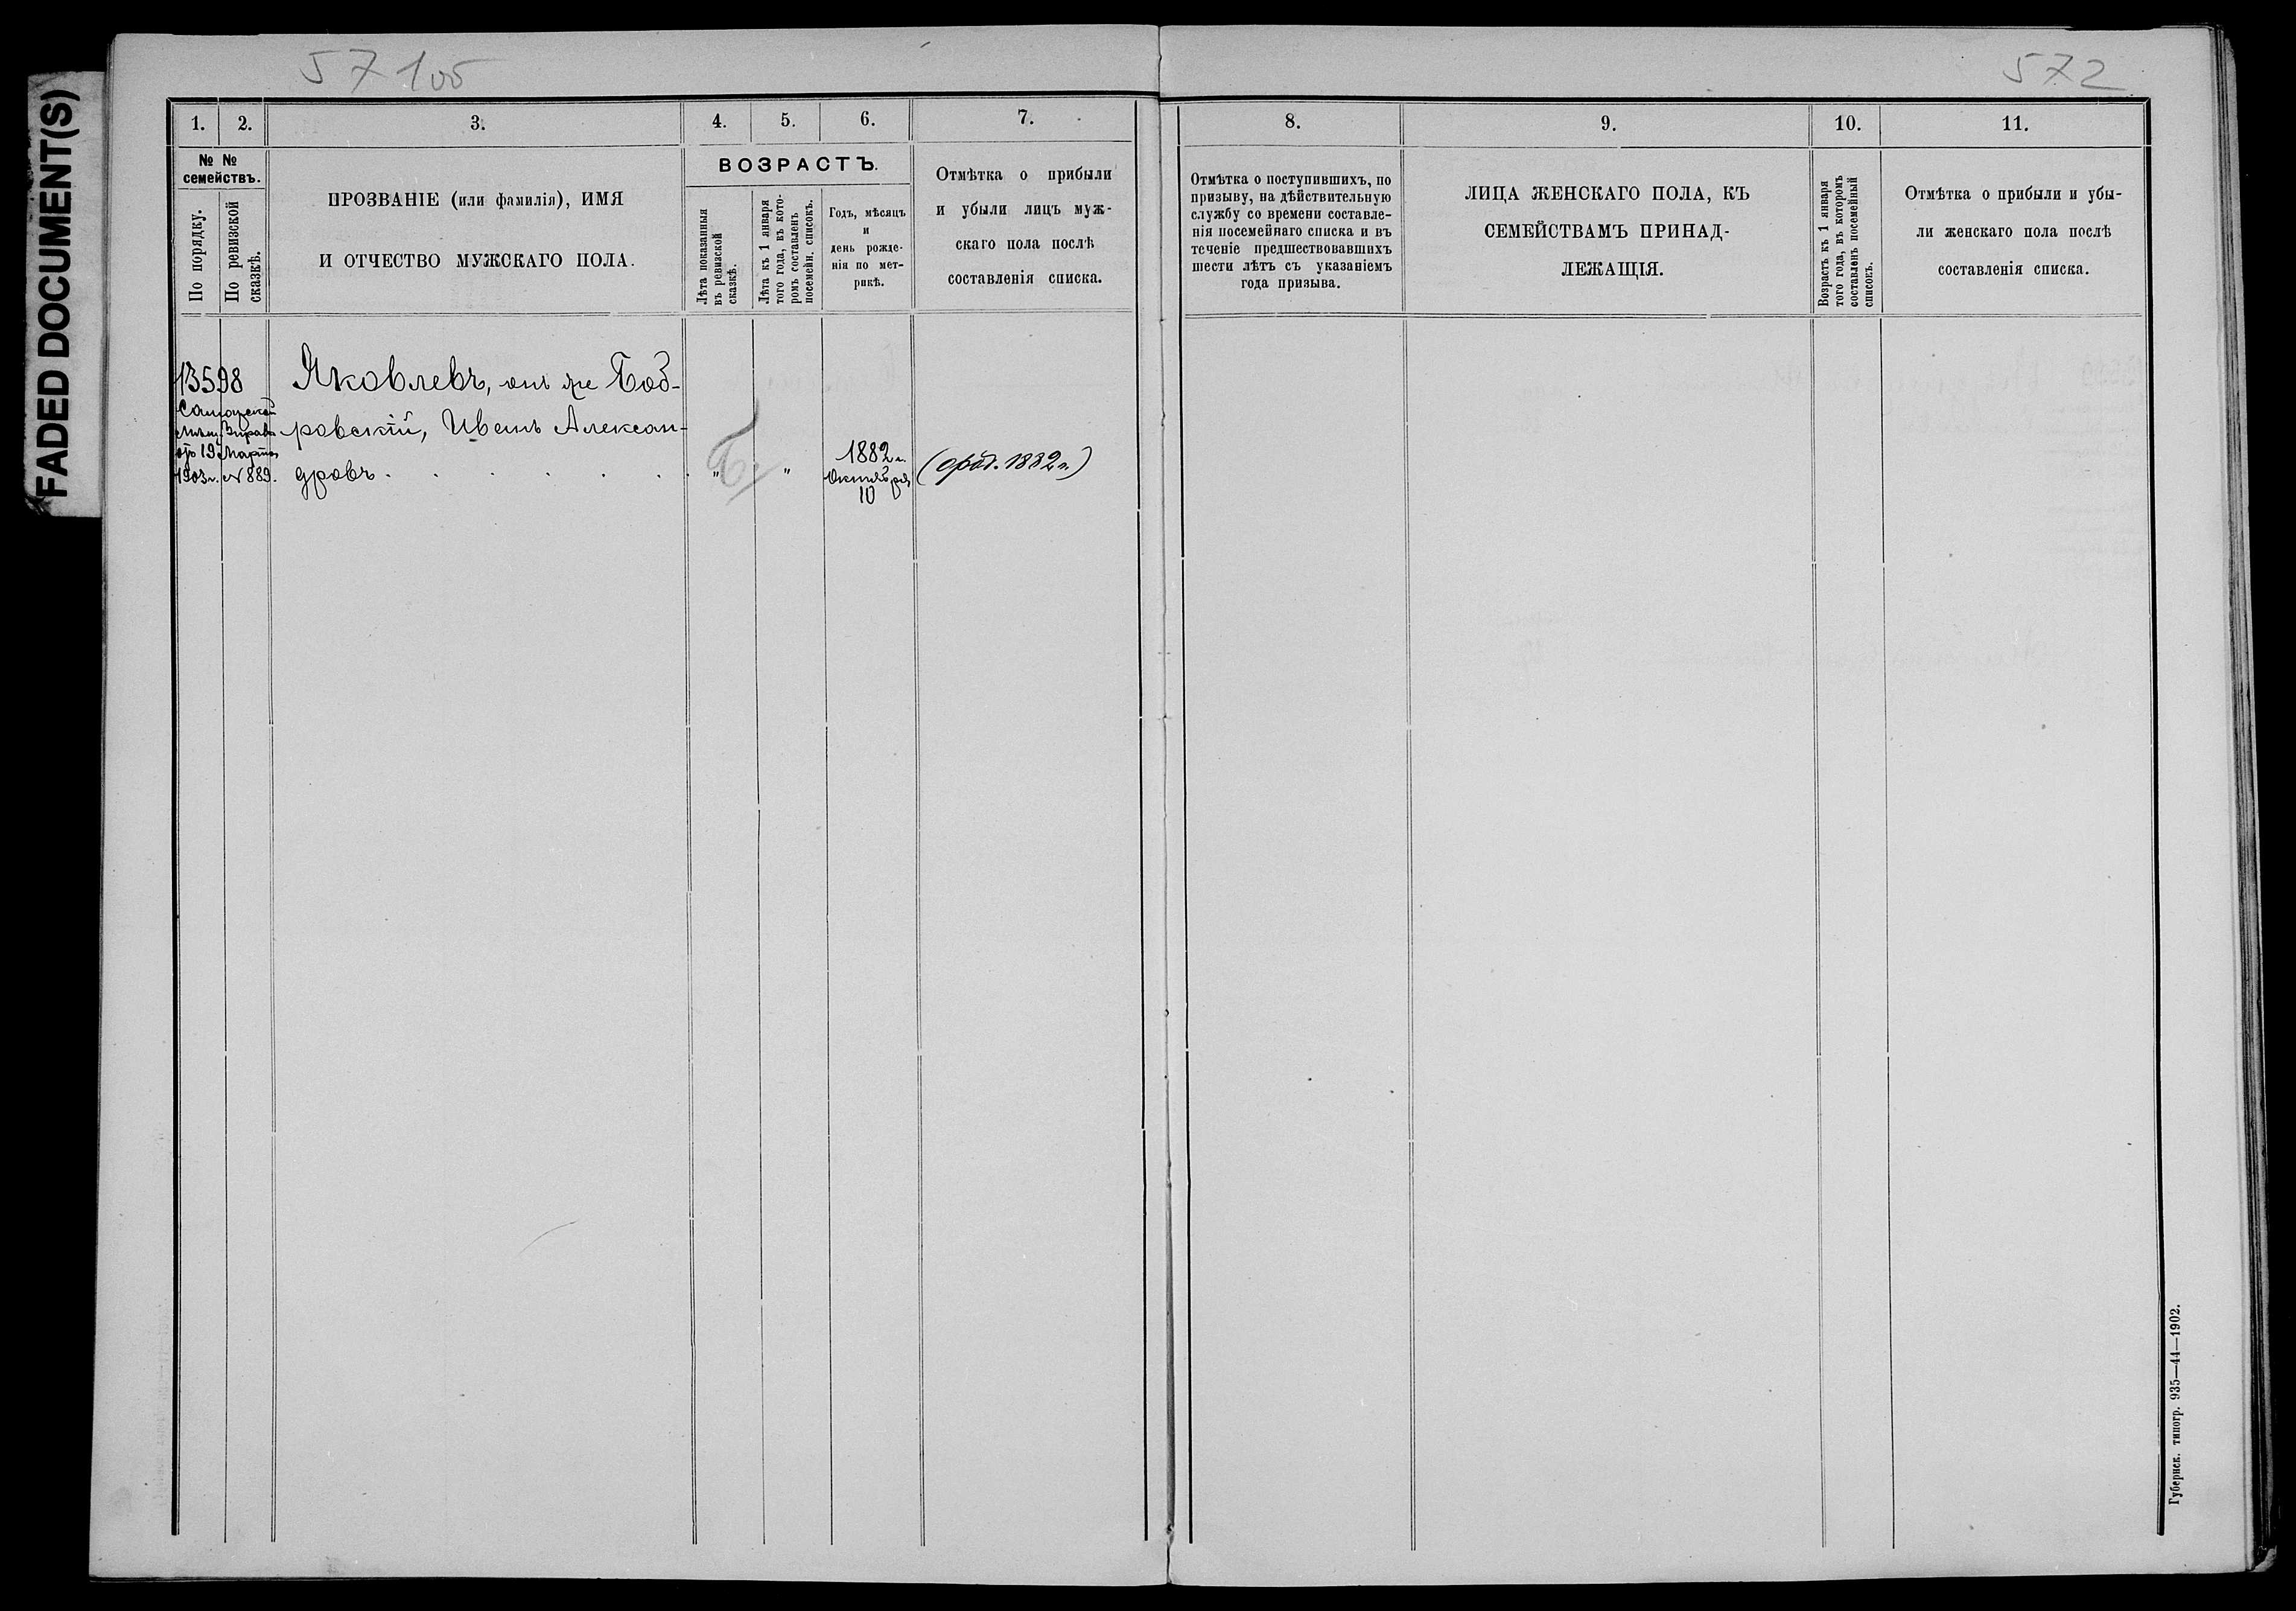 FADED DOCUMENT(S)
57105
572
1.
2.
3.
4.
5.
6.
7.
8.
9.
10.
11.
№ №
семействъ.
По порядку.
По ревизской
сказкѣ.
ПРОЗВАНІЕ (или фамилія), ИМЯ
И ОТЧЕСТВО МУЖСКАГО ПОЛА.
ВОЗРАСТЪ.
Лѣта показанныя
въ ревизской
сказкѣ.
Лѣта къ 1 января
того года, въ кото-
ромъ составленъ
посемейн. списокъ.
Годъ, мѣсяцъ
и
день рожде-
нія по мет-
рикѣ.
Отмѣтка о прибыли
и убыли лицъ муж-
скаго пола послѣ
составленія списка.
Отмѣтка о поступившихъ, по
призыву, на дѣйствительную
службу со времени составле-
нія посемейнаго списка и въ
теченіе предшествовавшихъ
шести лѣтъ съ указаніемъ
года призыва.
ЛИЦА ЖЕНСКАГО ПОЛА, КЪ
СЕМЕЙСТВАМЪ ПРИНАД-
ЛЕЖАЩІЯ.
Возрастъ къ 1 января
того года, въ которомъ
составленъ посемейный
списокъ.
Отмѣтка о прибыли и убы-
ли женскаго пола послѣ
составленія списка.
13598
Самарской
Мѣщ. Управы
отъ 19 Марта
1903 г. № 889.
Яковлевъ, онъ же Бод-
ровскій, Иванъ Алексан-
дровъ
" "
1882 г.
Октября
10
1882 г.)
Губернск. типогр. 935—44—1902.